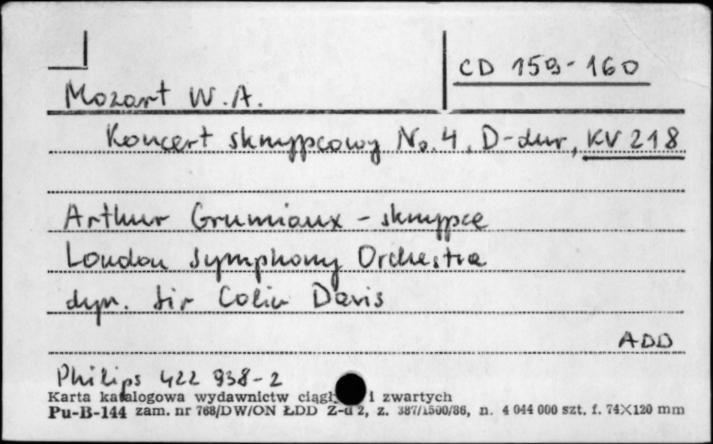 CD 159-160
Mozart W.A.
Koncert skrzypcowy No.4, D-dur, KV 218
Arthur Grumiaux - skrzypce
London Symphony Orchestra
dyr. Sir Colin Davis
ADD
Philips 422 938-2
Karta katalogowa wydawnictw ciągł i zwartych
Pu-B-144 zam. nr 768/DW/ON ŁDD Z-d 2, z. 387/1500/86, n. 4 044 000 szt. f. 74×120 mm